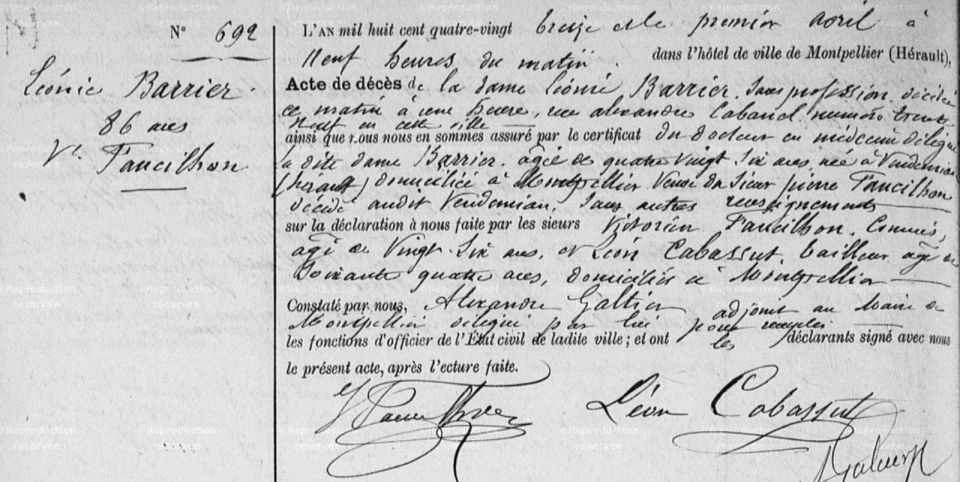 N° 692
Léonie Barrier.
86 ans
Ve Faucilhon
L'AN mil huit cent quatre-vingt treize et le premier avril à
Neuf heures du matin. dans l'hôtel de ville de Montpellier (Hérault),
Acte de décès de la dame Léonie Barrier. Sans profession. décédée
ce matin à une heure, rue alexandre Cabanel, numéro trente
Neuf en cette ville
ainsi que nous nous en sommes assuré par le certificat du docteur en médecin délégué
la dite dame Barrier. agée de quatre vingt Six ans née à Vendémian
(hérault) domiciliée à Montpellier Veuve du Sieur pierre Faucilhon
décédé audit Vendemian. Sans autres renseignements
sur la déclaration à nous faite par les sieurs Victorien Faucilhon. Commis,
agé de Vingt Six ans. et Léon Cabassut, tailleur agé de
Soixante quatre ans, domiciliés à Montpellier
Constaté par nous, Alexandre Galtier adjoint au Maire de
Montpellier délégué par lui pour remplir
les fonctions d'officier de l'État civil de ladite ville; et ont les déclarants signé avec nous
le présent acte, après lecture faite.
Léon Cabassut